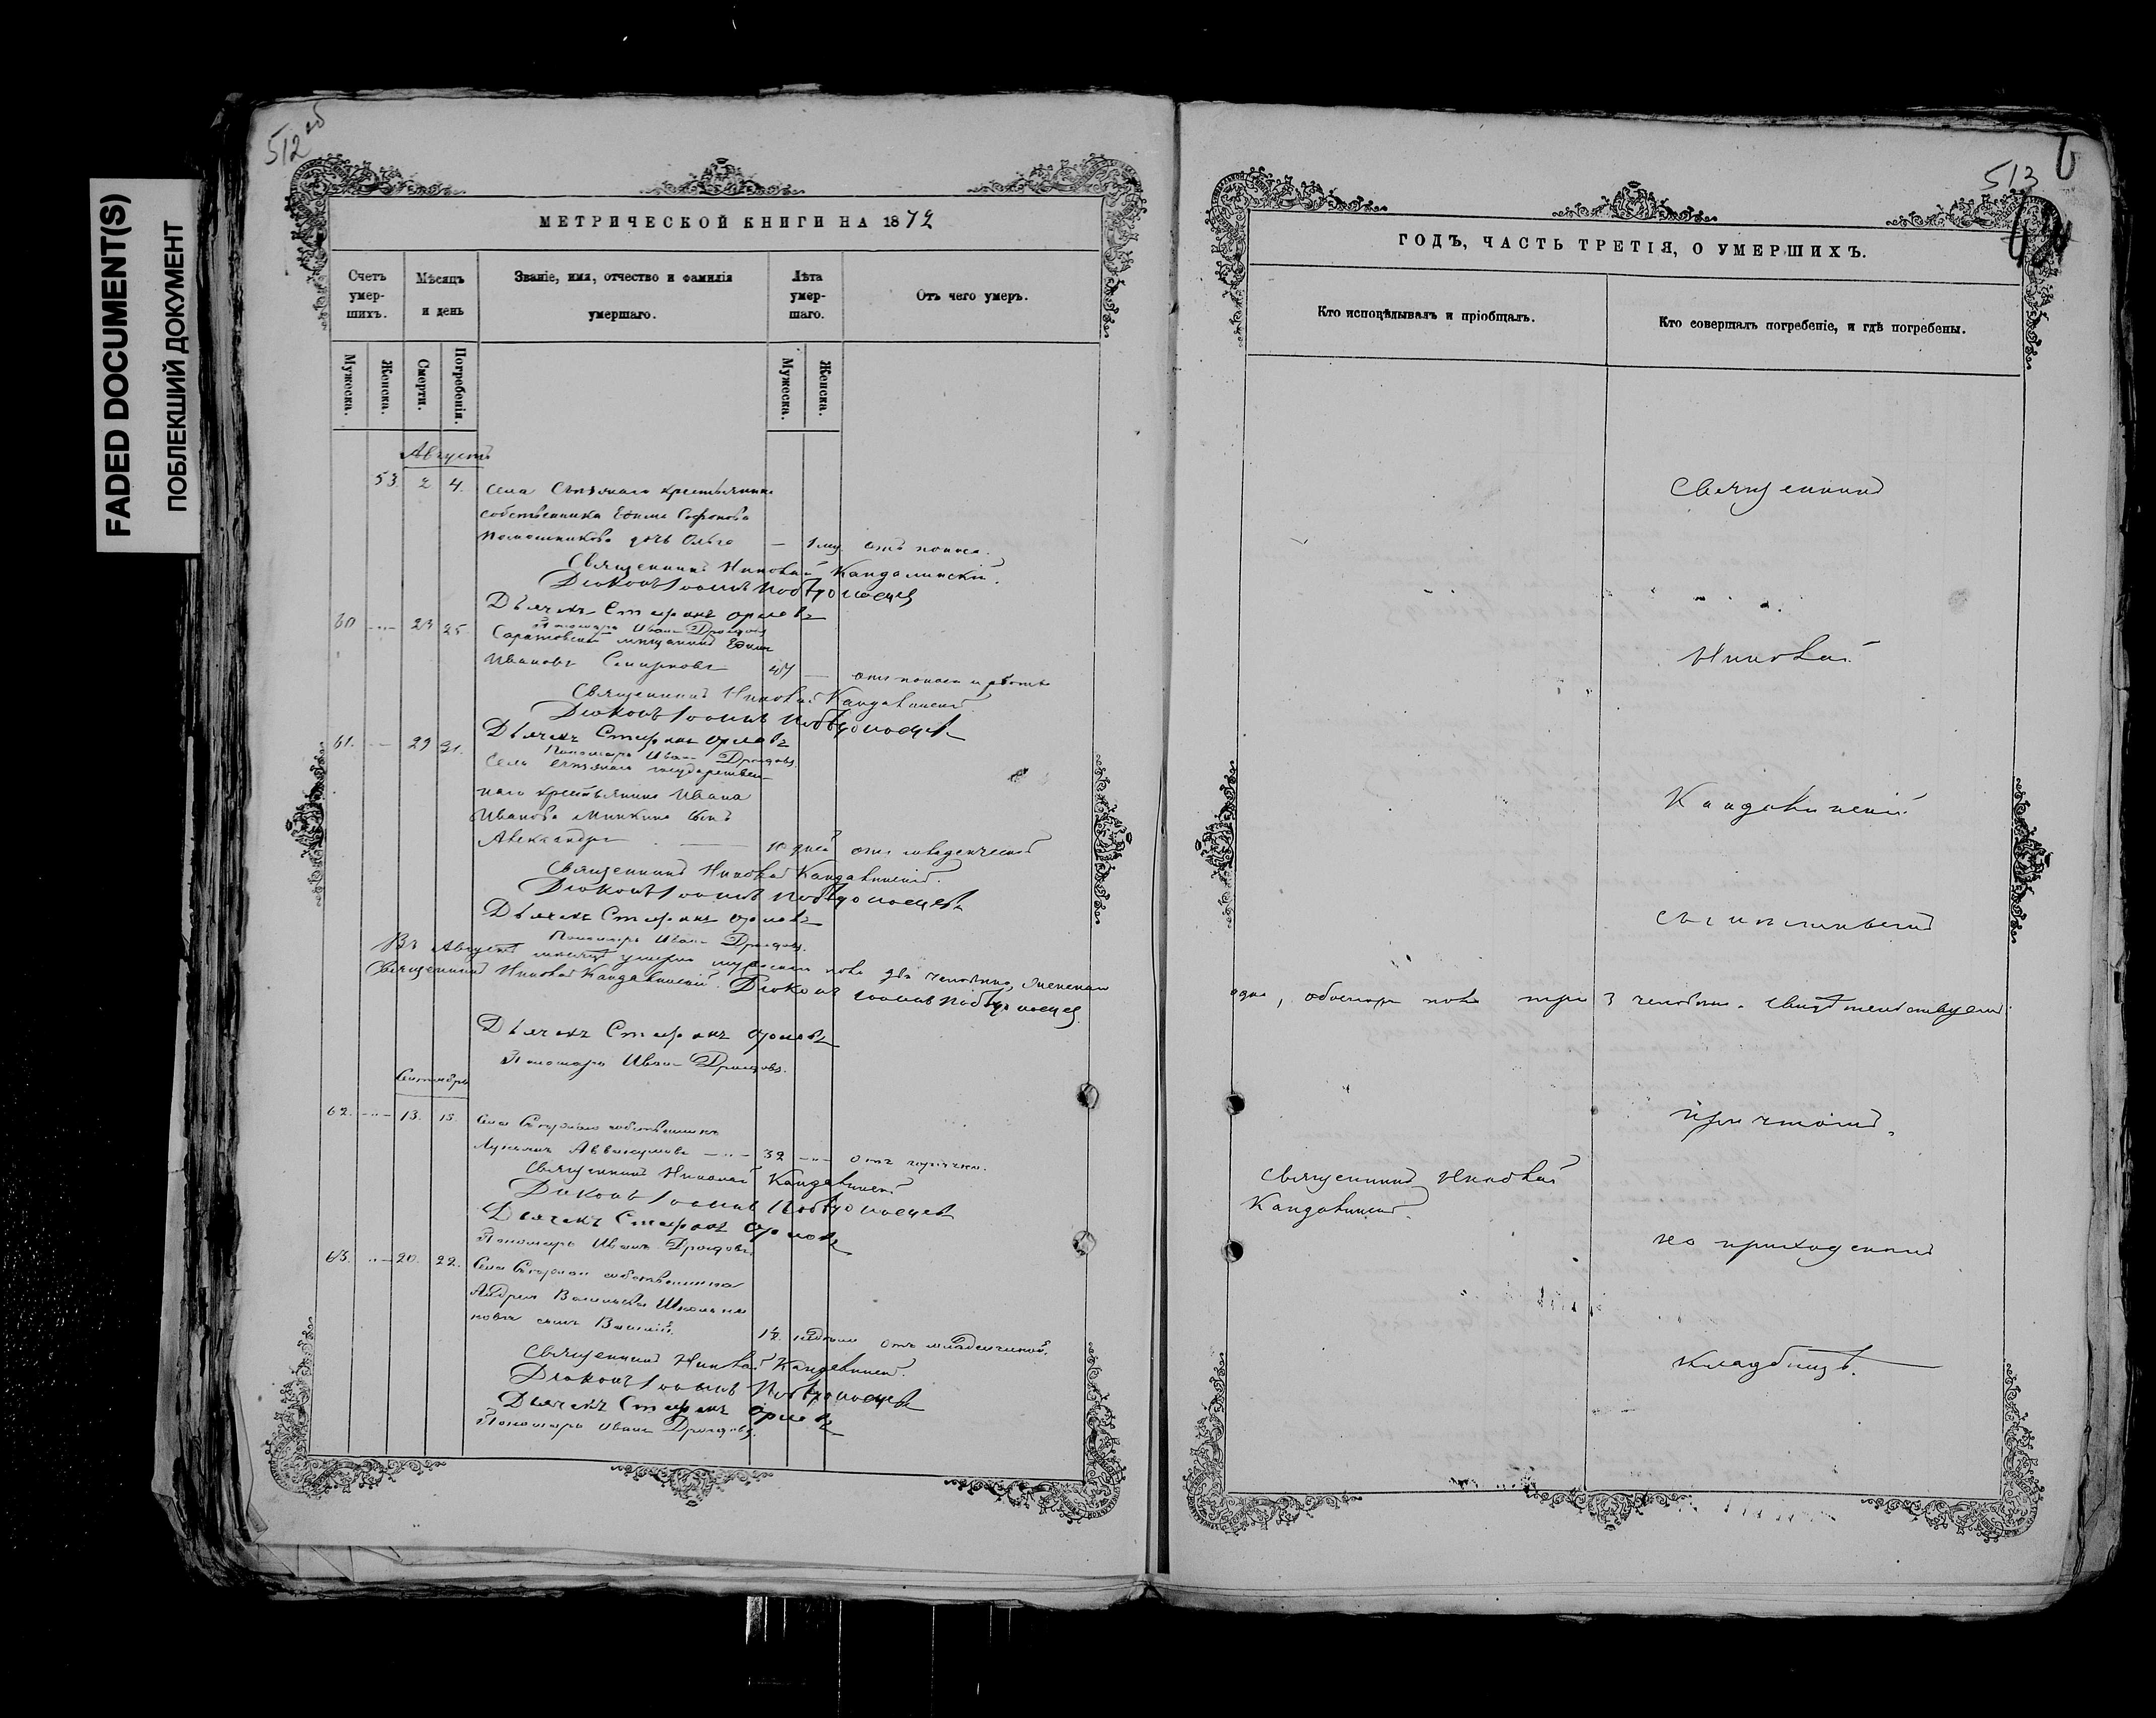 FADED DOCUMENT(S)
ПОБЛЕКШИЙ ДОКУМЕНТ
512 об
МЕТРИЧЕСКОЙ КНИГИ НА 1872
Счетъ умершихъ.
Мѣсяцъ и день
Званіе, имя, отчество и фамилія умершаго.
Лѣта умершаго.
Отъ чего умеръ.
Мужеска.
Женска.
Смерти.
Погребенія.
Мужеска.
Женска.
Августъ
53. 2 4. села крестьянина
собственника Ефима Софонова
дочь Ольга — 1 отъ поноса.
Священникъ Николай Кандалинскій.
Діаконъ Іоаннъ Побѣдоносцев
Дьячекъ Стефанъ Орловъ
Пономарь Иванъ Дроздовъ
60 24 25. Саратовскій мѣщанинъ Ефимъ
Ивановъ Смирновъ 47 — отъ поноса и рвоты
Священникъ Николай Кандалинскій
Діаконъ Іоаннъ Побѣдоносцевъ
Дьячекъ Стефанъ Орловъ
Пономарь Иванъ Дроздовъ.
61. 29 31. Села государствен-
наго крестьянина Ивана
Иванова Минкина сынъ
Александръ — 10 дней отъ младенческой
Священникъ Николай Кандалинскій.
Діаконъ Іоаннъ Побѣдоносцевъ
Дьячекъ Стефанъ Орловъ
Пономарь Иванъ Дроздовъ.
Въ Августѣ мѣсяцѣ умерло мужеска пола два человѣка, женска
Священникъ Николай Кандалинскій. Діаконъ Іоаннъ Побѣдоносцев
Дьячекъ Стефанъ Орловъ
Пономарь Иванъ Дроздовъ.
Сентябрь
62. 13. 15. Села собственникъ
Аввакумовъ 32 отъ горячки.
Священникъ Николай Кандалинскій
Діаконъ Іоаннъ Побѣдоносцевъ
Дьячекъ Стефанъ Орловъ
Пономарь Иванъ Дроздовъ.
63. 20. 22. Села собственника
Андрея Васильева
сынъ Василій. 12. недѣль отъ младенческой.
Священникъ Николай Кандалинскій.
Діаконъ Іоаннъ Побѣдоносцевъ
Дьячекъ Стефанъ Орловъ
Пономарь Иванъ Дроздовъ.
513
ГОДЪ, ЧАСТЬ ТРЕТІЯ, О УМЕРШИХЪ.
Кто исповѣдывалъ и пріобщалъ.
Кто совершалъ погребеніе, и гдѣ погребены.
Священникъ
Николай
Кандалинскій
съ
одна, обоего пола три 3 человѣка. свидѣтельствуемъ:
причтомъ.
Священникъ Николай
Кандалинскій.
на приходскомъ
кладбищѣ.